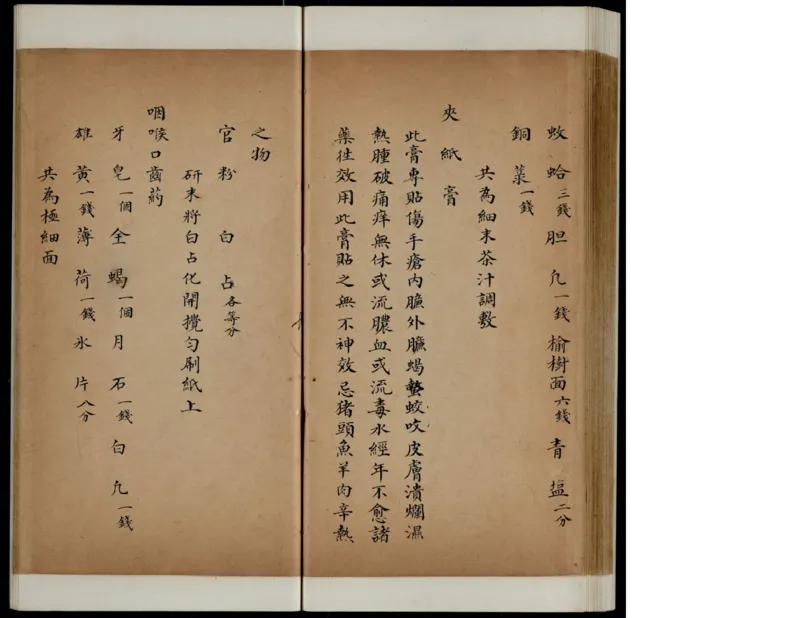 蚊蛤三錢胆凢一錢榆樹面六錢青塩二分
銅菉一錢
共為細末茶汁調敷
夾紙膏
此膏專貼傷手瘡内臁外臁蝎蜇蛟咬皮膚潰爛濕
熱腫破痛痒無休或流膿血或流毒水經年不愈諸
藥徃效用此膏貼之無不神效忌猪頭魚羊肉辛熱
之物
官粉白占各等分
研末將白占化開攪匀刷紙上
咽喉口齒葯
牙皂一個全蝎一個月石一錢白凢一錢
雄黃一錢薄荷一錢氷片八分
共為極細面